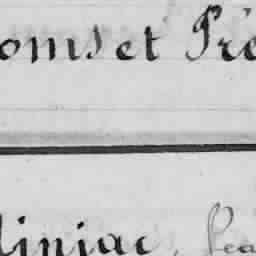 oms et Pré
liniac, Jea